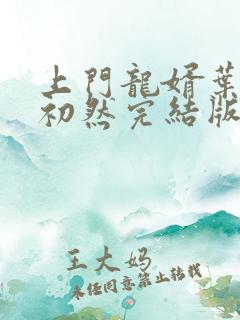 上門龍婿葉
初然完結版
王大妈
未经同意禁止转载